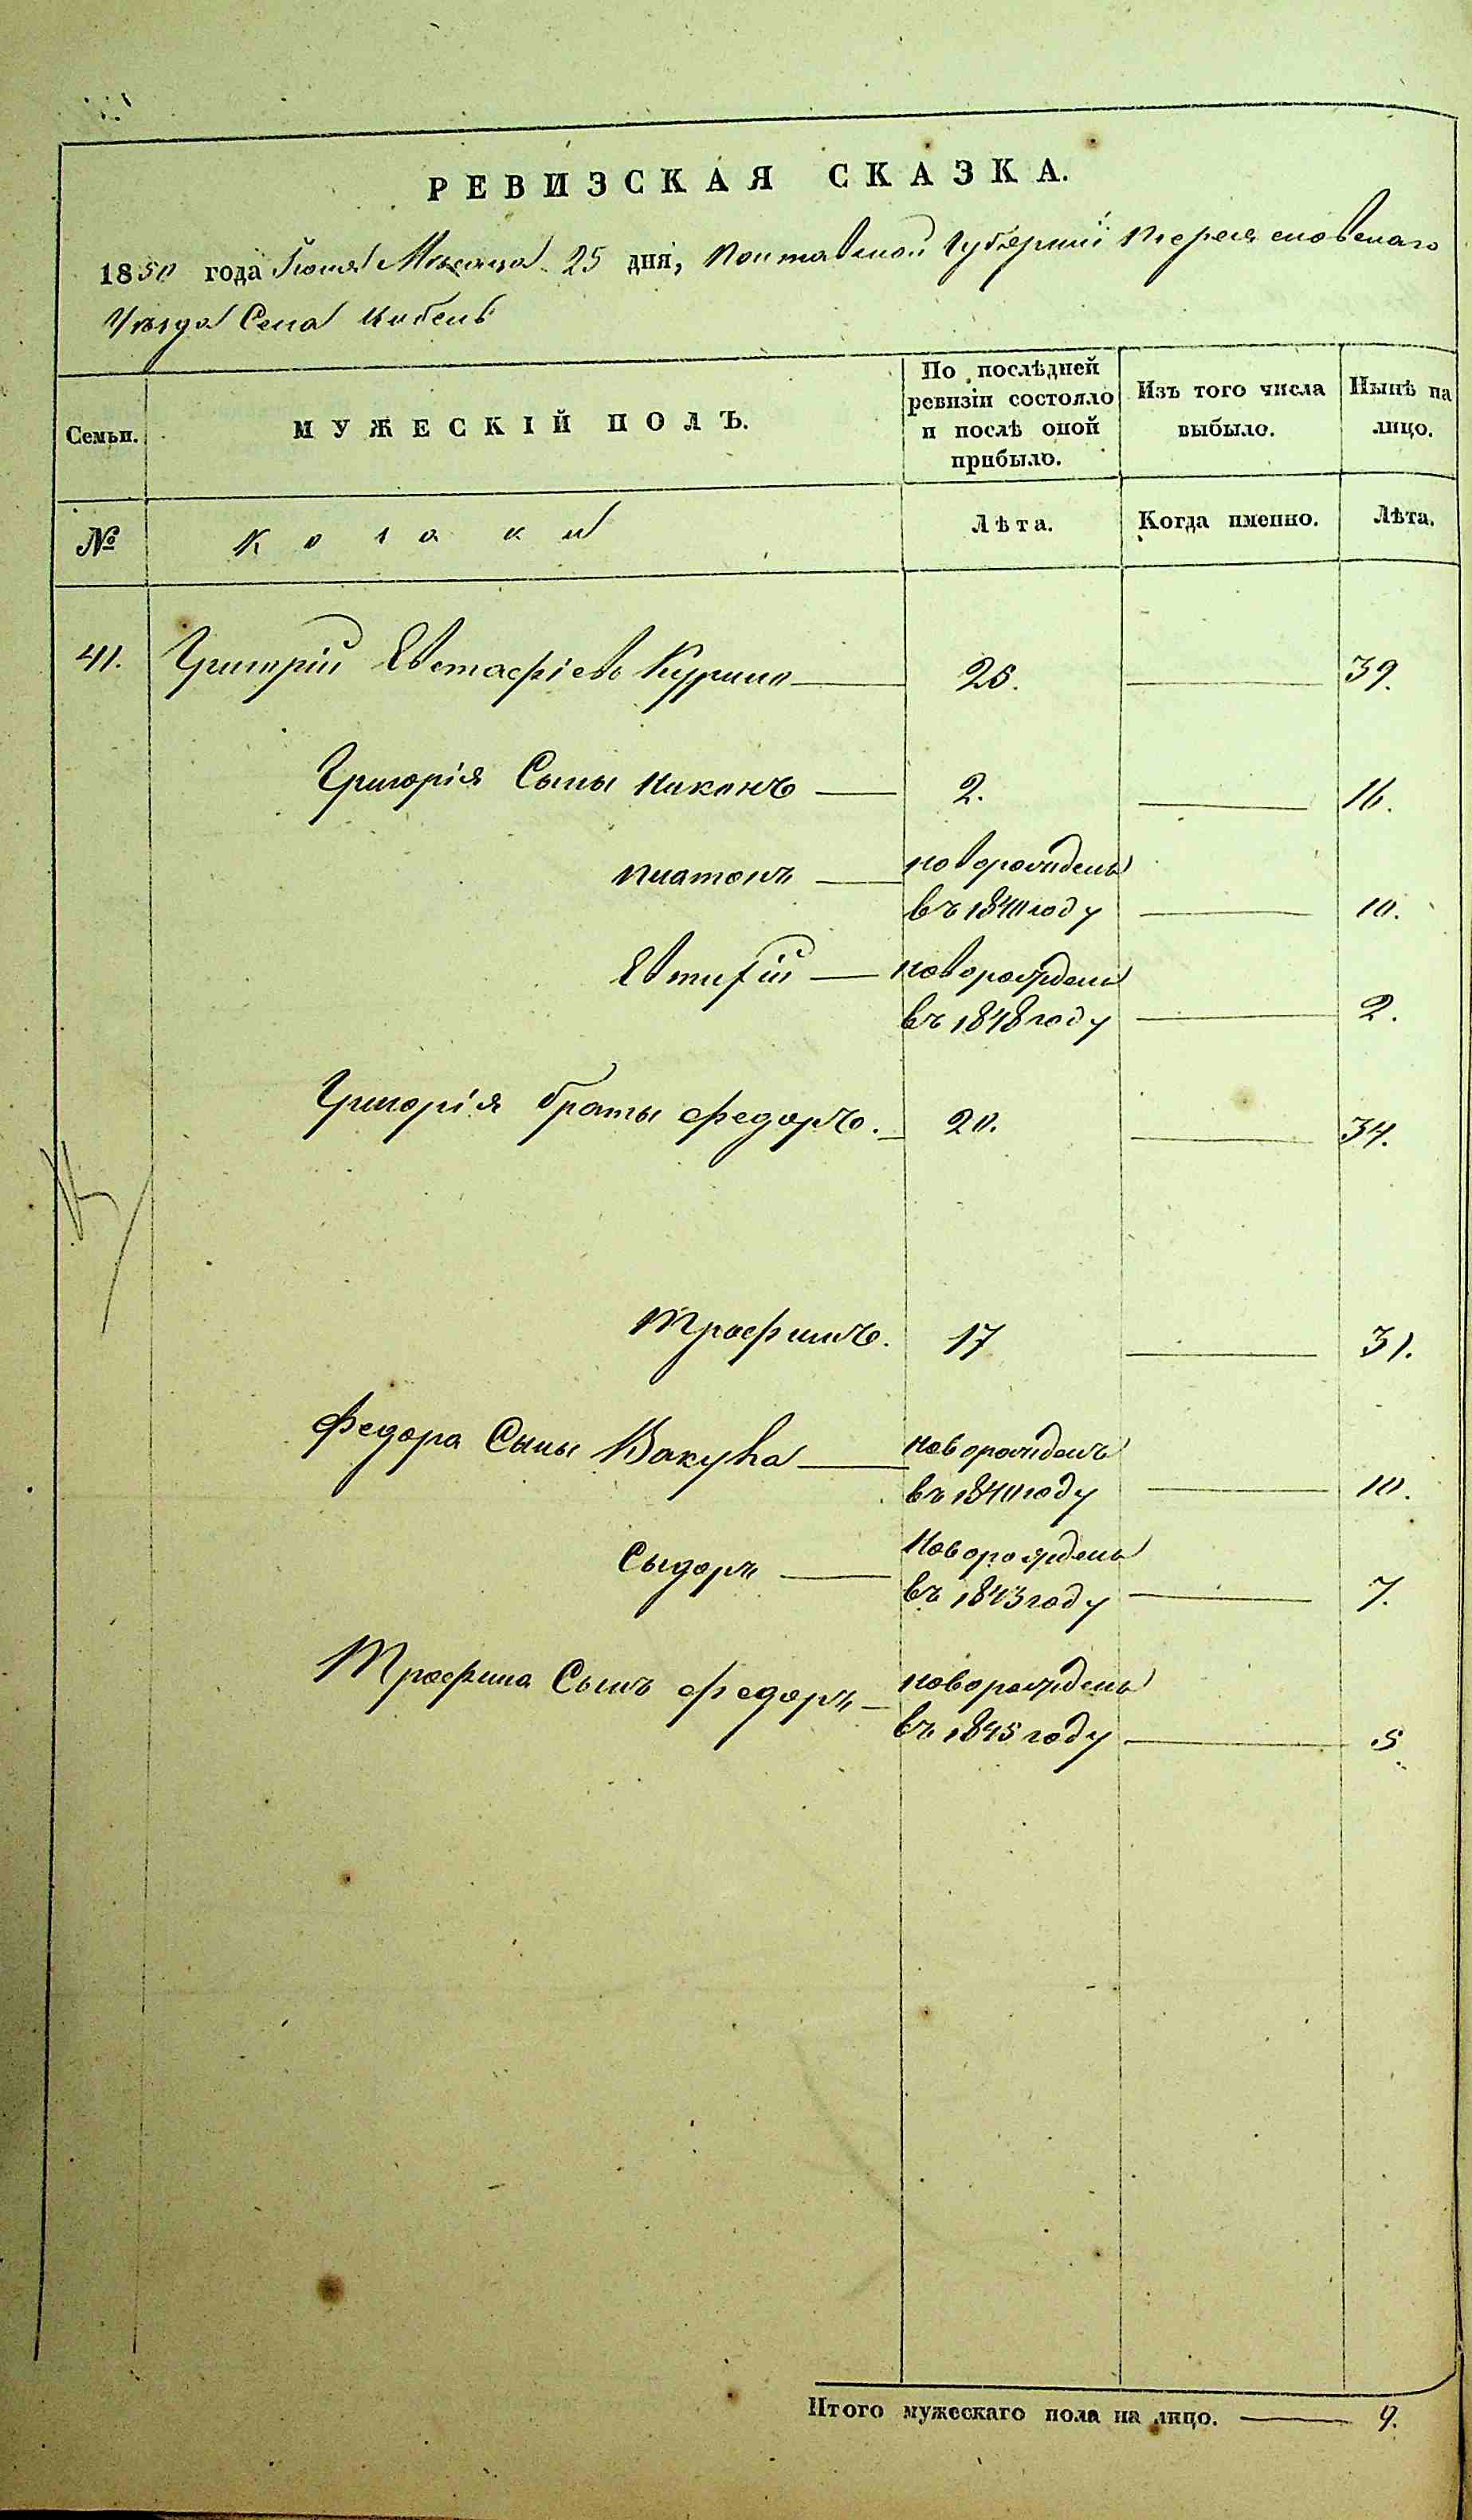 РЕВИЗСКАЯ СКАЗКА.
1850 года Іюня Мѣсяца 25 дня, Полтавской Губерніи Переяславскаго
Уѣзда Села
Семьи.
МУЖЕСКІЙ ПОЛЪ.
По послѣдней ревизіи состояло и послѣ оной прибыло.
Изъ того числа выбыло.
Нынѣ на лицо.
№ Козаки Лѣта. Когда именно. Лѣта.
41. Григорій Евстафіевъ 25. 39.
Григорія Сыны Никонъ 2. 16.
Платонъ новорожденъ
въ 1840 году 10.
Евтифій новорожденъ
въ 1848 году 2.
Григорія браты Федоръ. 20. 34.
Трофимъ. 17 31.
Федора Сыны Вакула новорожденъ
въ 1840 году 10.
Сыдоръ Новорожденъ
въ 1843 году 7.
Трофима Сынъ Федоръ новорожденъ
въ 1845 году 5.
Итого мужескаго пола на лицо. 9.